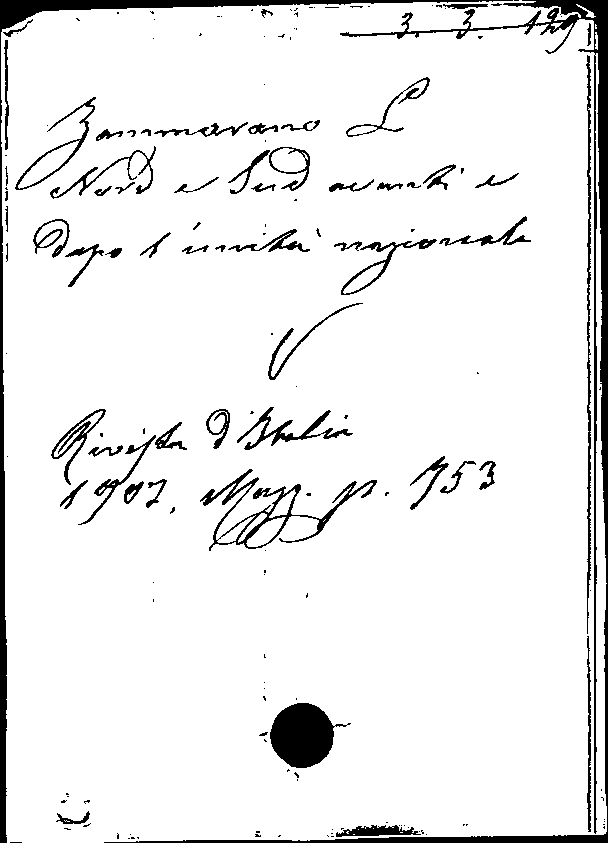 3. 3. 129
Zammarano L
Nord e Sud avanti e
dopo l'unità nazionale
Rivista d'Italia
1907, Magg. p. 753